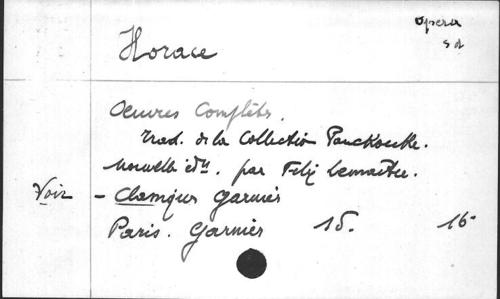 Opera
s d
Horace
Oeuvres Complèts.
trad. de la Collection Panckoucke.
nouvelle édn. par Felix Lemaitre.
Voir - Classiques Garnier
Paris. Garnier 15. 16-